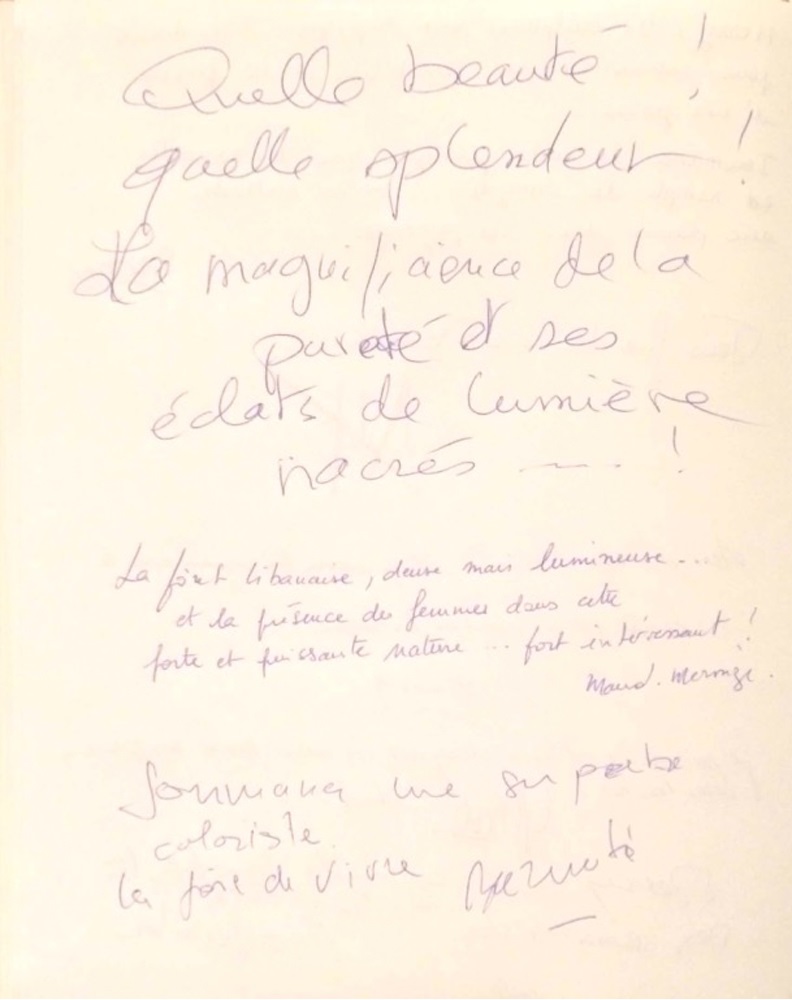 Quelle beauté !
quelle splendeur !
La magnificience de la
pureté et ses
éclats de lumière
nacrés ---- !
La forêt libanaise, dense mais lumineuse...
et la présence des femmes dans cette
forte et puissante nature ... fort intéressant !
Maud.
une superbe
coloriste
la joie de vivre